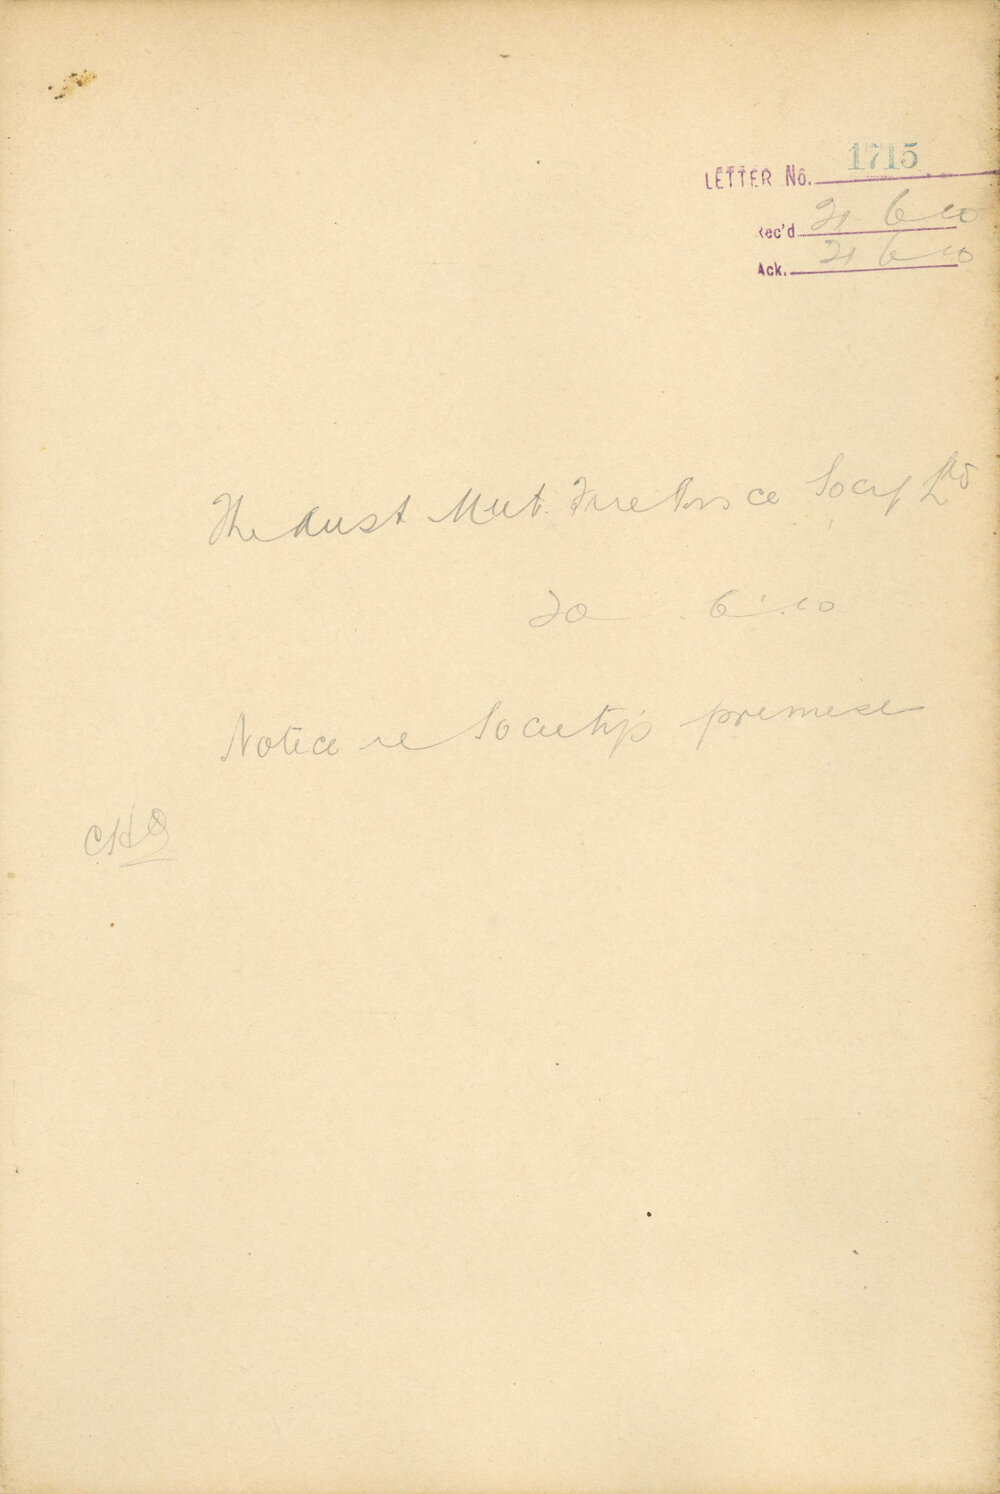 LETTER No. 1715
Rec'd 21 6 10
Ack. 21 6 10
The Aust Mut. Fire Ins ce Socy Ltd
20 . 6 . 10
Notice re Society's premises